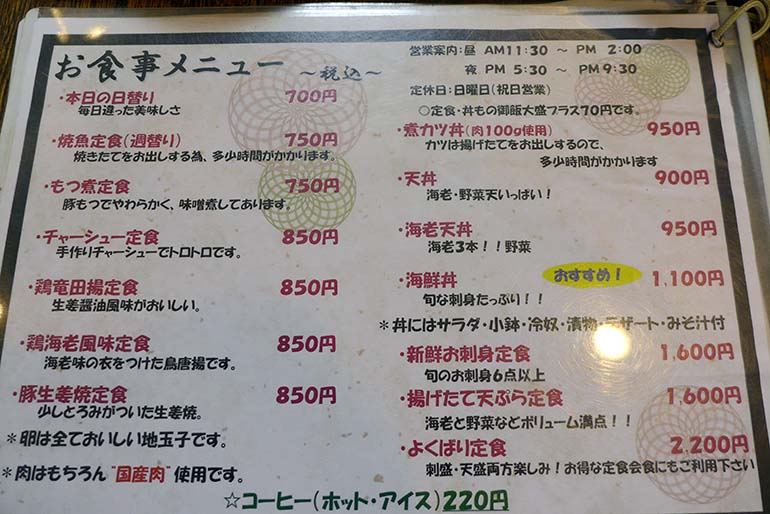 お食事メニュー ～税込～
・本日の日替り 700円
毎日違った美味しさ
・焼魚定食(週替り) 750円
焼きたてをお出しする為、多少時間がかかります。
・もつ煮定食 750円
豚もつでやわらかく、味噌煮してあります。
・チャーシュー定食 850円
手作りチャーシューでトロトロです。
・鶏竜田揚定食 850円
生姜醤油風味がおいしい。
・鶏海老風味定食 850円
海老味の衣をつけた鳥唐揚です。
・豚生姜焼定食 850円
少しとろみがついた生姜焼。
＊卵は全ておいしい地玉子です。
＊肉はもちろん"国産肉"使用です。
営業案内：昼 AM11：30 ～ PM 2：00
夜 PM 5：30 ～ PM9：30
定休日：日曜日(祝日営業)
○定食・丼もの御飯大盛プラス70円です。
・煮カツ丼(肉100g使用) 950円
カツは揚げたてをお出しするので、
多少時間がかかります
・天丼 900円
海老・野菜天いっぱい！
・海老天丼 950円
海老3本！！野菜
・海鮮丼 おすすめ！ 1,100円
旬な刺身たっぷり！！
＊丼にはサラダ・小鉢・冷奴・漬物・デザート・みそ汁付
・新鮮お刺身定食 1,600円
旬のお刺身6点以上
・揚げたて天ぷら定食 1,600円
海老と野菜などボリューム満点！！
・よくばり定食 2,200円
刺盛・天盛両方楽しみ！お得な定食会食にもご利用下さい
☆コーヒー(ホット・アイス)220円